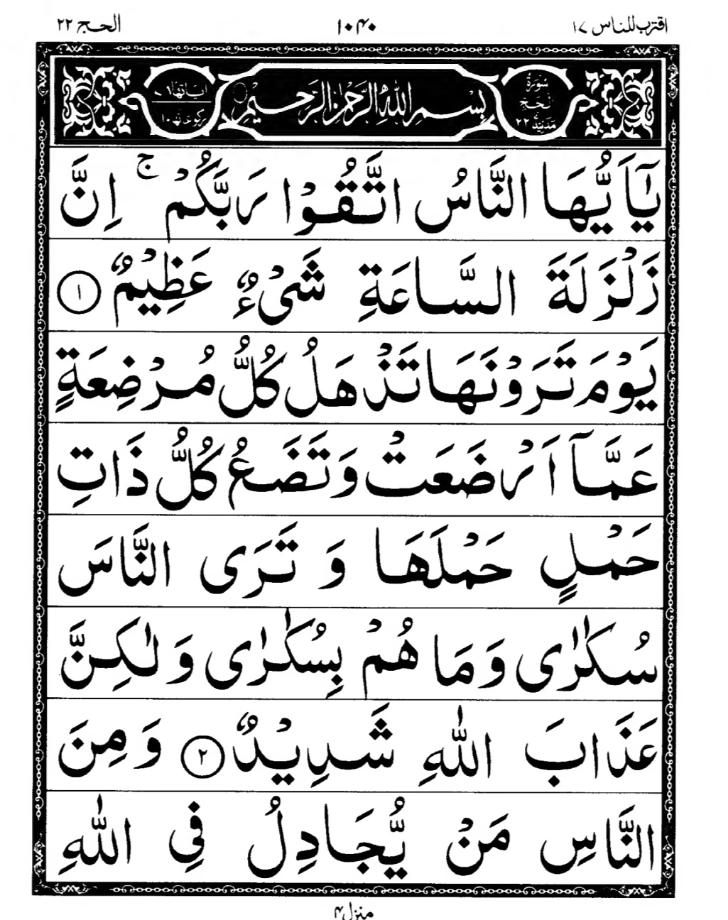 اقترب للناس ١٧
١٠٣٠
الحج ٢٢
سُوْرَةُ الْحَجِّ مَدَنِيَّةٌ ٢٢
بِسْمِ اللّٰهِ الرَّحْمٰنِ الرَّحِيْمِ
يٰۤاَيُّهَا النَّاسُ اتَّقُوْا رَبَّكُمْ ۚ اِنَّ
زَلْزَلَةَ السَّاعَةِ شَیْءٌ عَظِيْمٌ ۝١
يَوْمَ تَرَوْنَهَا تَذْهَلُ كُلُّ مُرْضِعَةٍ
عَمَّاۤ اَرْضَعَتْ وَتَضَعُ كُلُّ ذَاتِ
حَمْلٍ حَمْلَهَا وَ تَرَى النَّاسَ
سُكٰرٰى وَمَا هُمْ بِسُكٰرٰى وَ لٰكِنَّ
عَذَابَ اللّٰهِ شَدِيْدٌ ۝٢ وَ مِنَ
النَّاسِ مَنْ يُّجَادِلُ فِي اللّٰهِ
منزل ٤